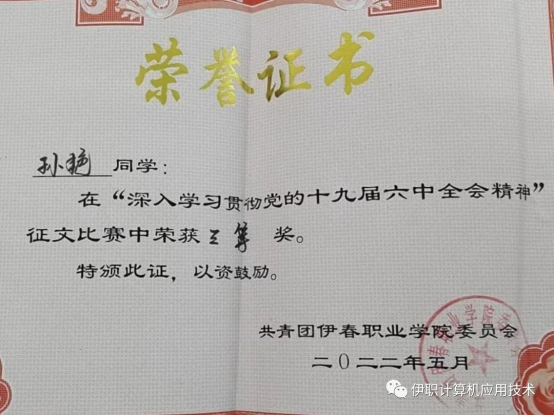 荣誉证书
孙艳 同学：
在“深入学习贯彻党的十九届六中全会精神”
征文比赛中荣获三等 奖。
特颁此证，以资鼓励。
共青团伊春职业学院委员会
二〇二二年五月
伊职计算机应用技术